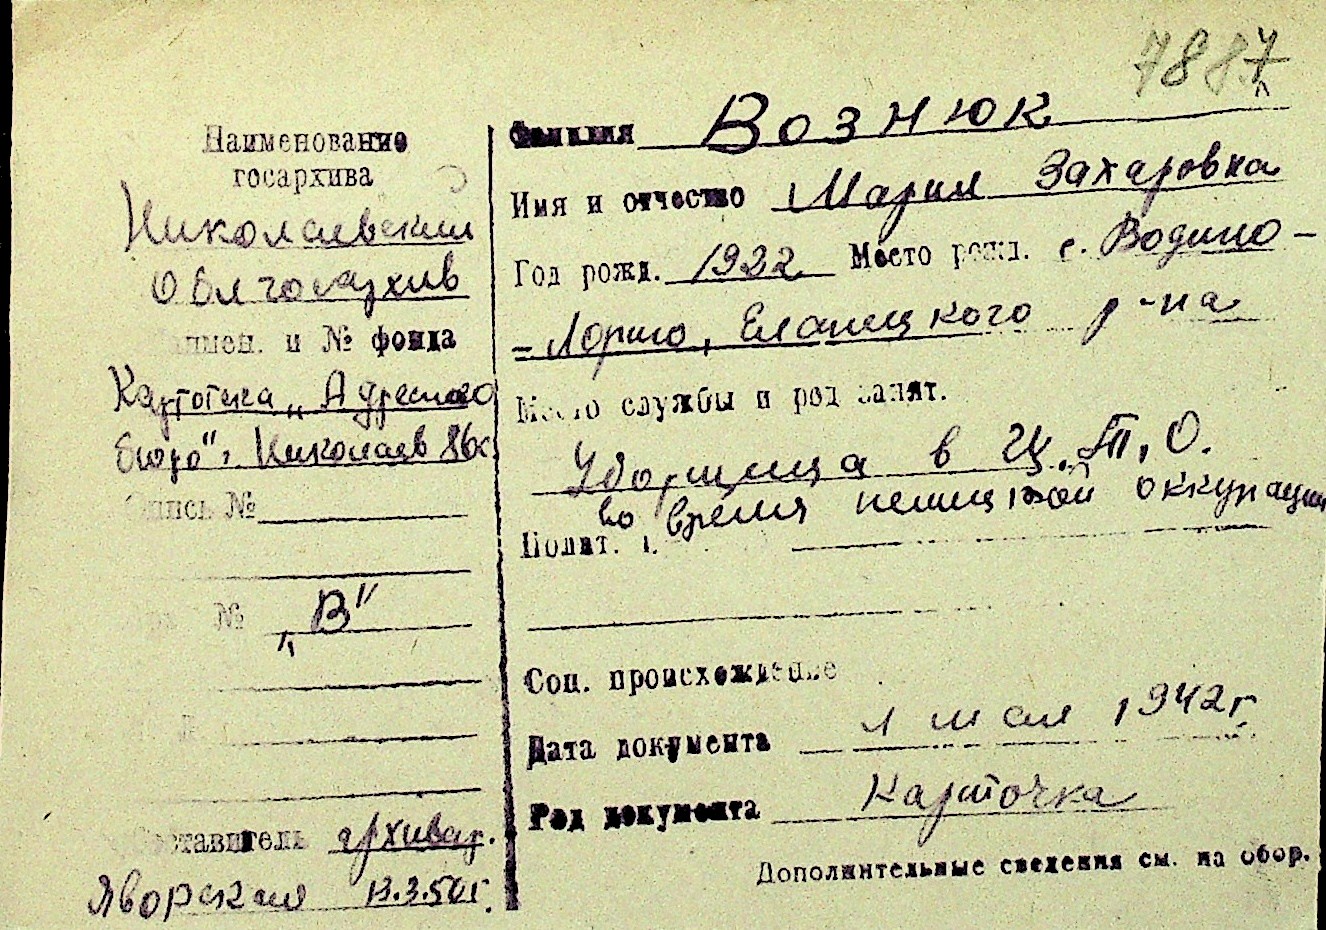 7887
Наименование
госархива
Николаевский
Облгосархив
и № фонда
Картотека „Адресного
бюро" г. Николаев
Опись №
№ „В"
Составитель архивар.
Яворская 13.3.50г.
Фамилия Вознюк
Имя и отчество Мария Захаровна
Год рожд. 1922 Место рожд. с. Водяно-
-Лорино, Еланецкого р-на
Место службы и род занят.
Уборщица в Щ.Т.О.
во время немецкой оккупации
Полит.
Соц. происхождение
Дата документа 1 мая 1942г.
Род документа Карточка
Дополнительные сведения см. на обор.